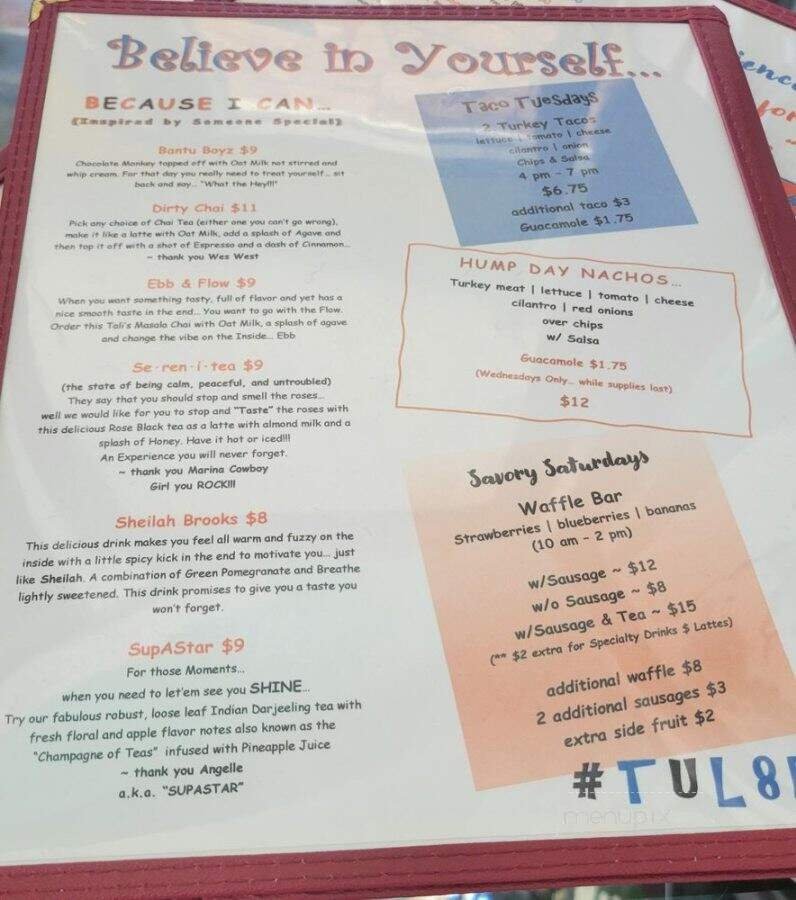 Believe in Yourself...
BECAUSE I CAN...
(Inspired by Someone Special)
Bantu Boyz $9
Chocolate Monkey topped off with Oat Milk not stirred and
whip cream. For that day you really need to treat yourself... sit
back and say... "What the Hey!!!"
Dirty Chai $11
Pick any choice of Chai Tea (either one you can't go wrong),
make it like a latte with Oat Milk, add a splash of Agave and
then top it off with a shot of Espresso and a dash of Cinnamon...
~ thank you Wes West
Ebb & Flow $9
When you want something tasty, full of flavor and yet has a
nice smooth taste in the end... You want to go with the Flow.
Order this Tali's Masala Chai with Oat Milk, a splash of agave
and change the vibe on the Inside... Ebb
Se·ren·i·tea $9
(the state of being calm, peaceful, and untroubled)
They say that you should stop and smell the roses...
well we would like for you to stop and "Taste" the roses with
this delicious Rose Black tea as a latte with almond milk and a
splash of Honey. Have it hot or iced!!!
An Experience you will never forget.
~ thank you Marina Cowboy
Girl you ROCK!!!
Sheilah Brooks $8
This delicious drink makes you feel all warm and fuzzy on the
inside with a little spicy kick in the end to motivate you... just
like Sheilah. A combination of Green Pomegranate and Breathe
lightly sweetened. This drink promises to give you a taste you
won't forget.
SupAStar $9
For those Moments...
when you need to let'em see you SHINE...
Try our fabulous robust, loose leaf Indian Darjeeling tea with
fresh floral and apple flavor notes also known as the
"Champagne of Teas" infused with Pineapple Juice
~ thank you Angelle
a.k.a. "SUPASTAR"
Taco Tuesdays
2 Turkey Tacos
lettuce | tomato | cheese
cilantro | onion
Chips & Salsa
4 pm - 7 pm
$6.75
additional taco $3
Guacamole $1.75
HUMP DAY NACHOS...
Turkey meat | lettuce | tomato | cheese
cilantro | red onions
over chips
w/ Salsa
Guacamole $1.75
(Wednesdays Only... while supplies last)
$12
Savory Saturdays
Waffle Bar
Strawberries | blueberries | bananas
(10 am - 2 pm)
w/Sausage ~ $12
w/o Sausage ~ $8
w/Sausage & Tea ~ $15
(** $2 extra for Specialty Drinks $ Lattes)
additional waffle $8
2 additional sausages $3
extra side fruit $2
#TUL8
menupix